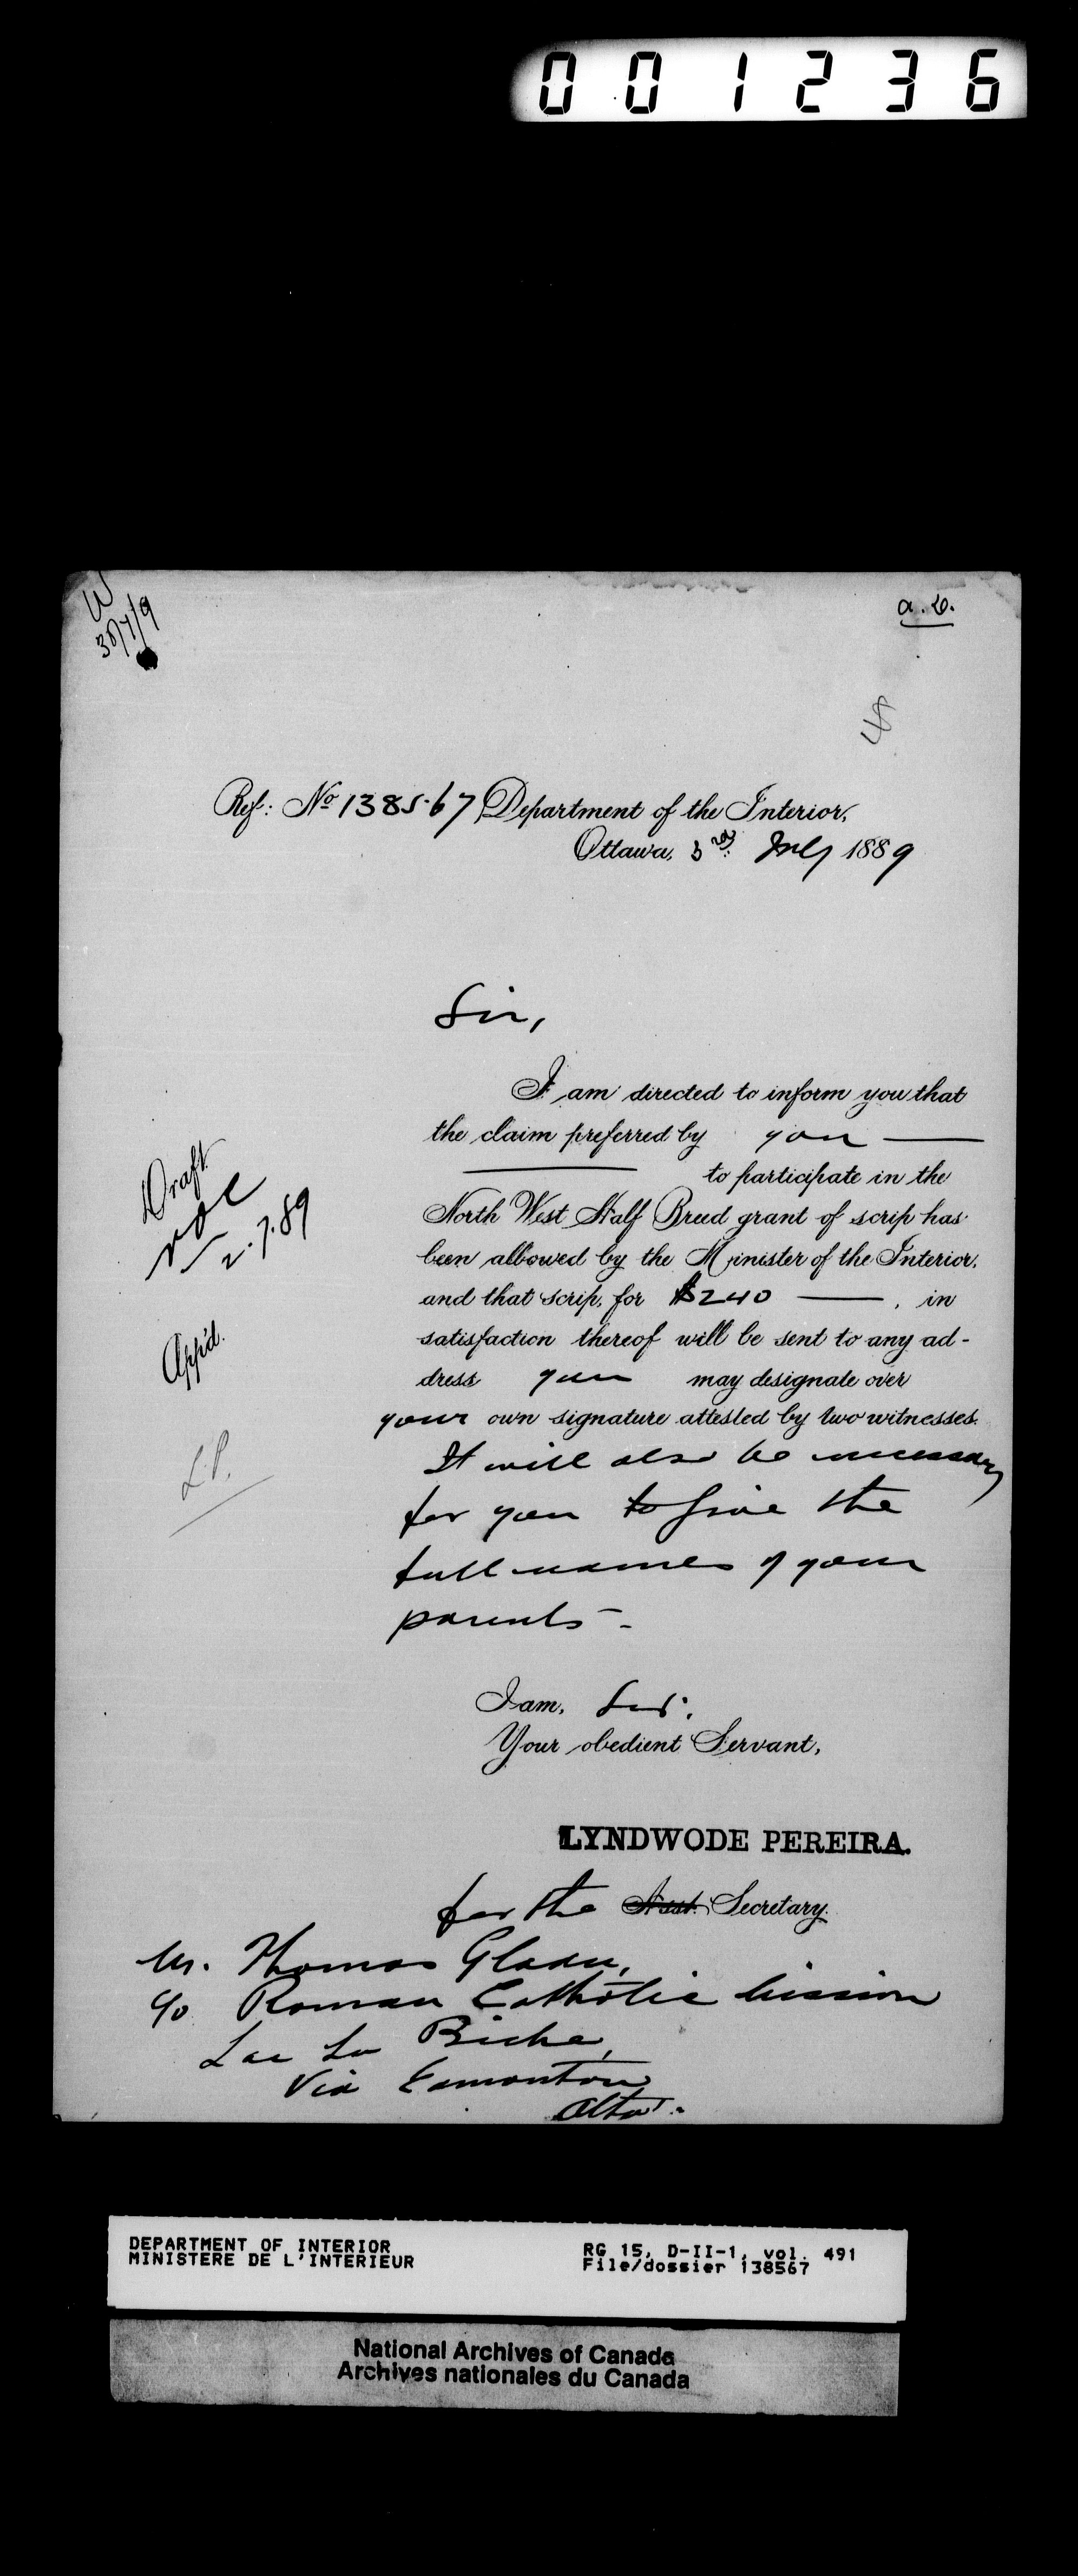 001236
W
30/7/9
a.
48
Ref: No 138567 Department of the Interior,
Ottawa, 3rd July 1889
Sir,
I am directed to inform you that
the claim preferred by you
to participate in the
North West Half Breed grant of scrip has
been allowed by the Minister of the Interior,
and that scrip, for $240, in
satisfaction thereof will be sent to any ad-
dress you may designate over
your own signature attested by two witnesses.
It will also be necessary
for you to give the
full names of your
parents -
Draft
2.7.89
App'd.
L.P.
I am, Sir,
Your obedient Servant,
LYNDWODE PEREIRA.
for the Asst. Secretary.
Mr. Thomas Gladu,
c/o Roman Catholic Mission
Lac La Biche,
Via Edmonton
Alta.
DEPARTMENT OF INTERIOR
MINISTERE DE L'INTERIEUR
RG 15, D-II-1, vol. 491
File/dossier 138567
National Archives of Canada
Archives nationales du Canada